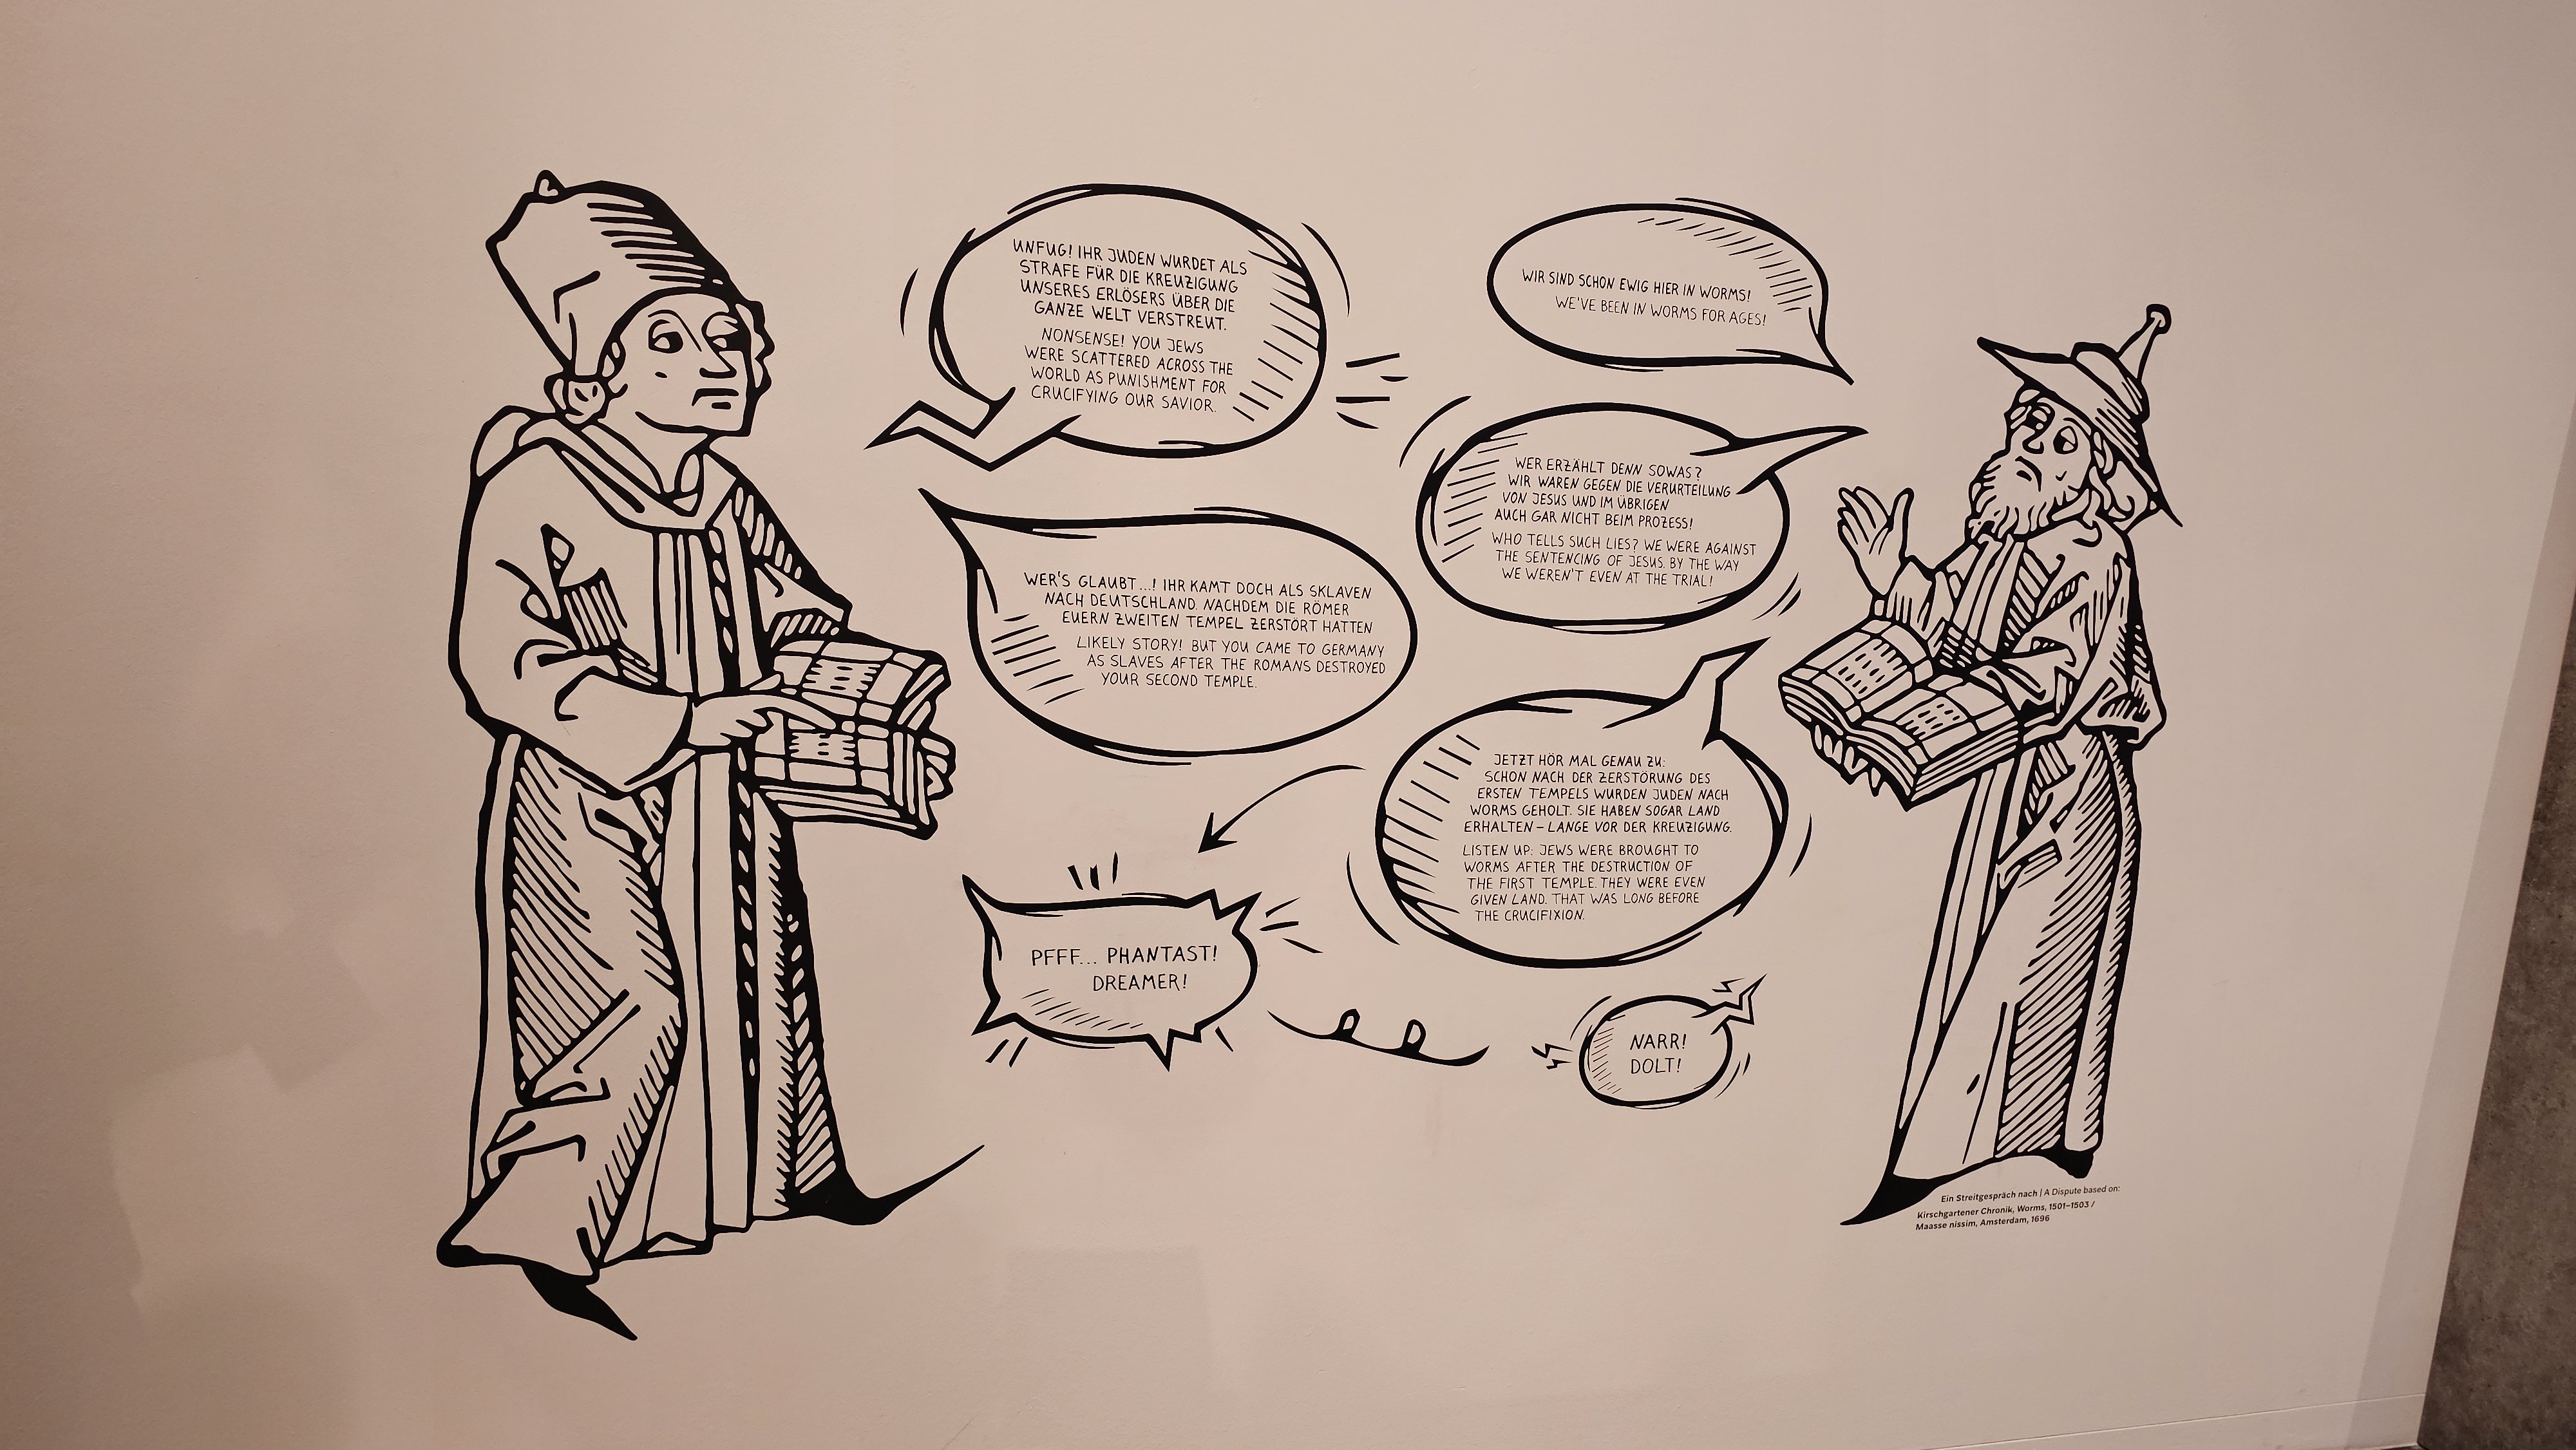 WIR SIND SCHON EWIG HIER IN WORMS!
WE'VE BEEN IN WORMS FOR AGES!
UNFUG! IHR JUDEN WURDET ALS
STRAFE FÜR DIE KREUZIGUNG
UNSERES ERLÖSERS ÜBER DIE
GANZE WELT VERSTREUT.
NONSENSE! YOU JEWS
WERE SCATTERED ACROSS THE
WORLD AS PUNISHMENT FOR
CRUCIFYING OUR SAVIOR.
WER ERZÄHLT DENN SOWAS?
WIR WAREN GEGEN DIE VERURTEILUNG
VON JESUS UND IM ÜBRIGEN
AUCH GAR NICHT BEIM PROZESS!
WHO TELLS SUCH LIES? WE WERE AGAINST
THE SENTENCING OF JESUS. BY THE WAY
WE WEREN'T EVEN AT THE TRIAL!
WER'S GLAUBT...! IHR KAMT DOCH ALS SKLAVEN
NACH DEUTSCHLAND, NACHDEM DIE RÖMER
EUERN ZWEITEN TEMPEL ZERSTÖRT HATTEN
LIKELY STORY! BUT YOU CAME TO GERMANY
AS SLAVES AFTER THE ROMANS DESTROYED
YOUR SECOND TEMPLE.
JETZT HÖR MAL GENAU ZU:
SCHON NACH DER ZERSTÖRUNG DES
ERSTEN TEMPELS WURDEN JUDEN NACH
WORMS GEHOLT. SIE HABEN SOGAR LAND
ERHALTEN – LANGE VOR DER KREUZIGUNG.
LISTEN UP: JEWS WERE BROUGHT TO
WORMS AFTER THE DESTRUCTION OF
THE FIRST TEMPLE. THEY WERE EVEN
GIVEN LAND. THAT WAS LONG BEFORE
THE CRUCIFIXION.
PFFF... PHANTAST!
DREAMER!
NARR!
DOLT!
Ein Streitgespräch nach | A Dispute based on:
Kirschgartener Chronik, Worms, 1501–1503 /
Maasse nissim, Amsterdam, 1696